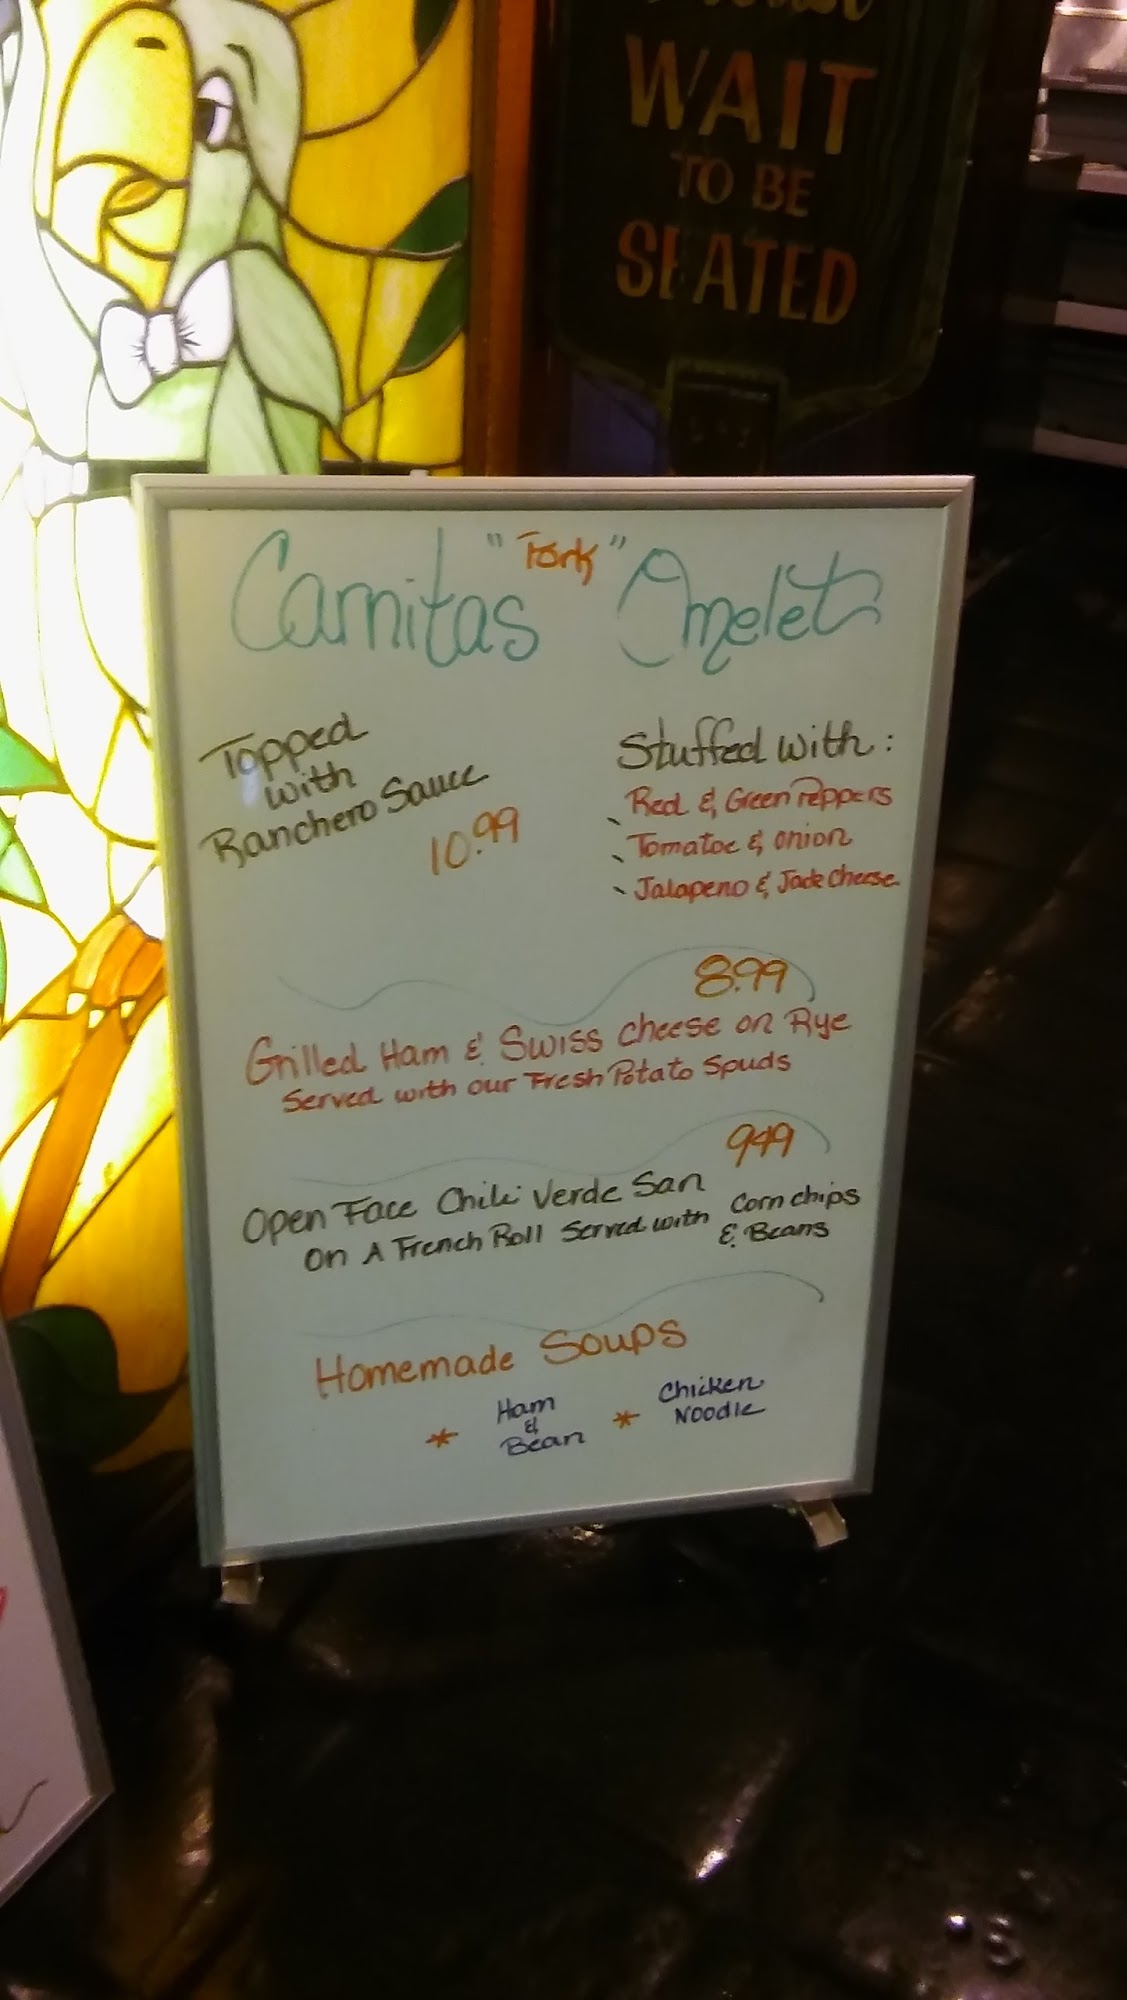 WAIT
TO BE
SEATED
Carnitas "Pork" Omelet
Topped
with
Ranchero Sauce
10.99
Stuffed with:
Red & Green Peppers
Tomatoe & Onion
Jalapeno & Jack Cheese
8.99
Grilled Ham & Swiss Cheese on Rye
Served with our Fresh Potato Spuds
9.49
Open Face Chili Verde San
On A French Roll Served with Corn chips
& Beans
Homemade Soups
* Ham
&
Bean
* Chicken
Noodle